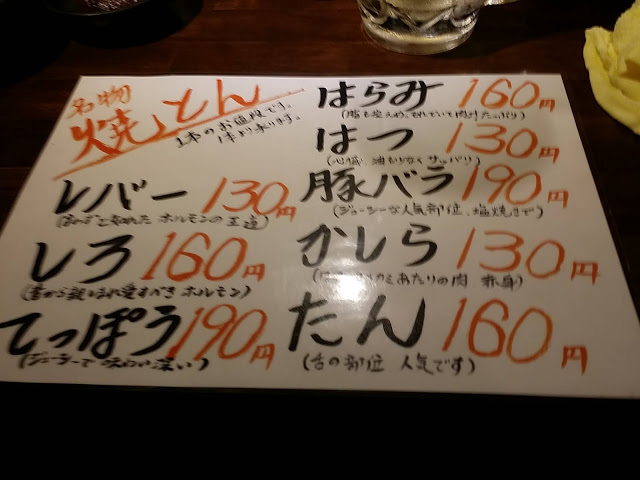 名物
焼とん
1本のお値段です。
1本より承ります。
レバー 130円
ホルモンの王道)
しろ 160円
(昔から親しまれ愛すべきホルモン)
てっぽう 190円
(ジューシーで味わい深い)
はらみ 160円
はつ 130円
(心臓、油が少なくサッパリ)
豚バラ 190円
(ジューシーな人気部位、塩焼きで)
かしら 130円
あたりの肉 赤身)
たん 160円
(舌の部位 人気です)